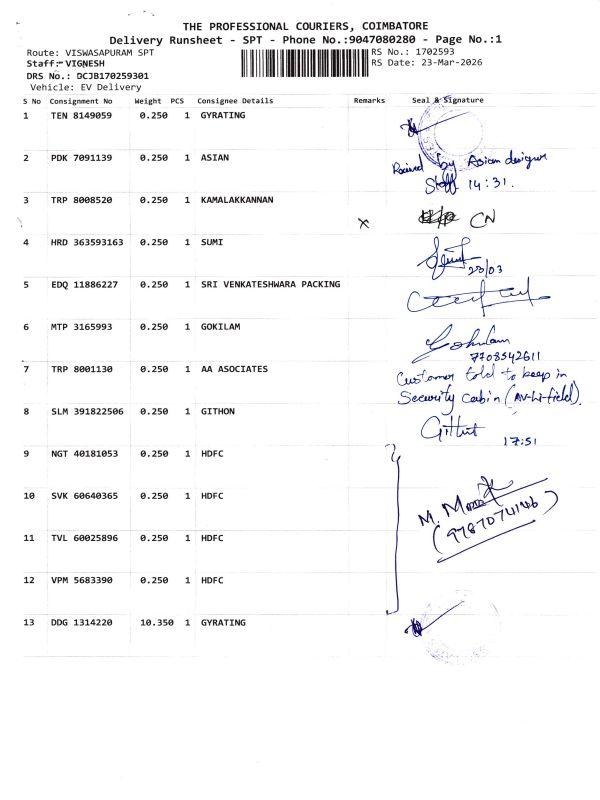 THE PROFESSIONAL COURIERS, COIMBATORE
Delivery Runsheet - SPT - Phone No.:9047080280 - Page No.:1
Route: VISWASAPURAM SPT RS No.: 1702593
Staff:-VIGNESH RS Date: 23-Mar-2026
DRS No.: DCJB170259301
Vehicle: EV Delivery
S No Consignment No Weight PCS Consignee Details Remarks Seal & Signature
1 TEN 8149059 0.250 1 GYRATING
2 PDK 7091139 0.250 1 ASIAN by Asian designer
Staff 14:31.
3 TRP 8008520 0.250 1 KAMALAKKANNAN x CN
4 HRD 363593163 0.250 1 SUMI
5 EDQ 11886227 0.250 1 SRI VENKATESHWARA PACKING
6 MTP 3165993 0.250 1 GOKILAM
7708542611
7 TRP 8001130 0.250 1 AA ASOCIATES Customer told to keep in
Security cabin (AV-Hi-field).
8 SLM 391822506 0.250 1 GITHON
17:51
9 NGT 40181053 0.250 1 HDFC
10 SVK 60640365 0.250 1 HDFC
11 TVL 60025896 0.250 1 HDFC
12 VPM 5683390 0.250 1 HDFC
13 DDG 1314220 10.350 1 GYRATING